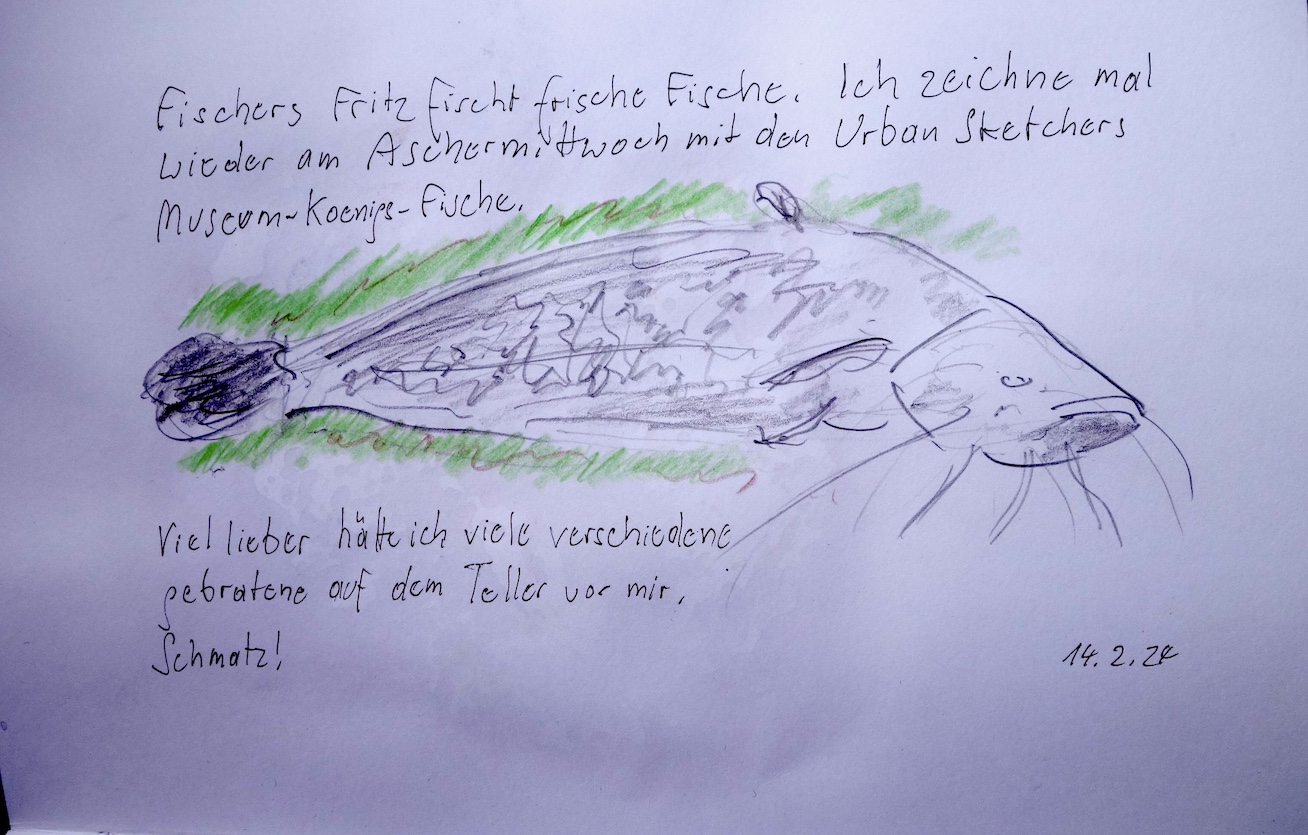 Fischers Fritz fischt frische Fische. Ich zeichne mal
wieder am Aschermittwoch mit den Urban Sketchers
Museum-Koenigs-Fische.
Viel lieber hätte ich viele verschiedene
gebratene auf dem Teller vor mir.
Schmatz!
14.2.24